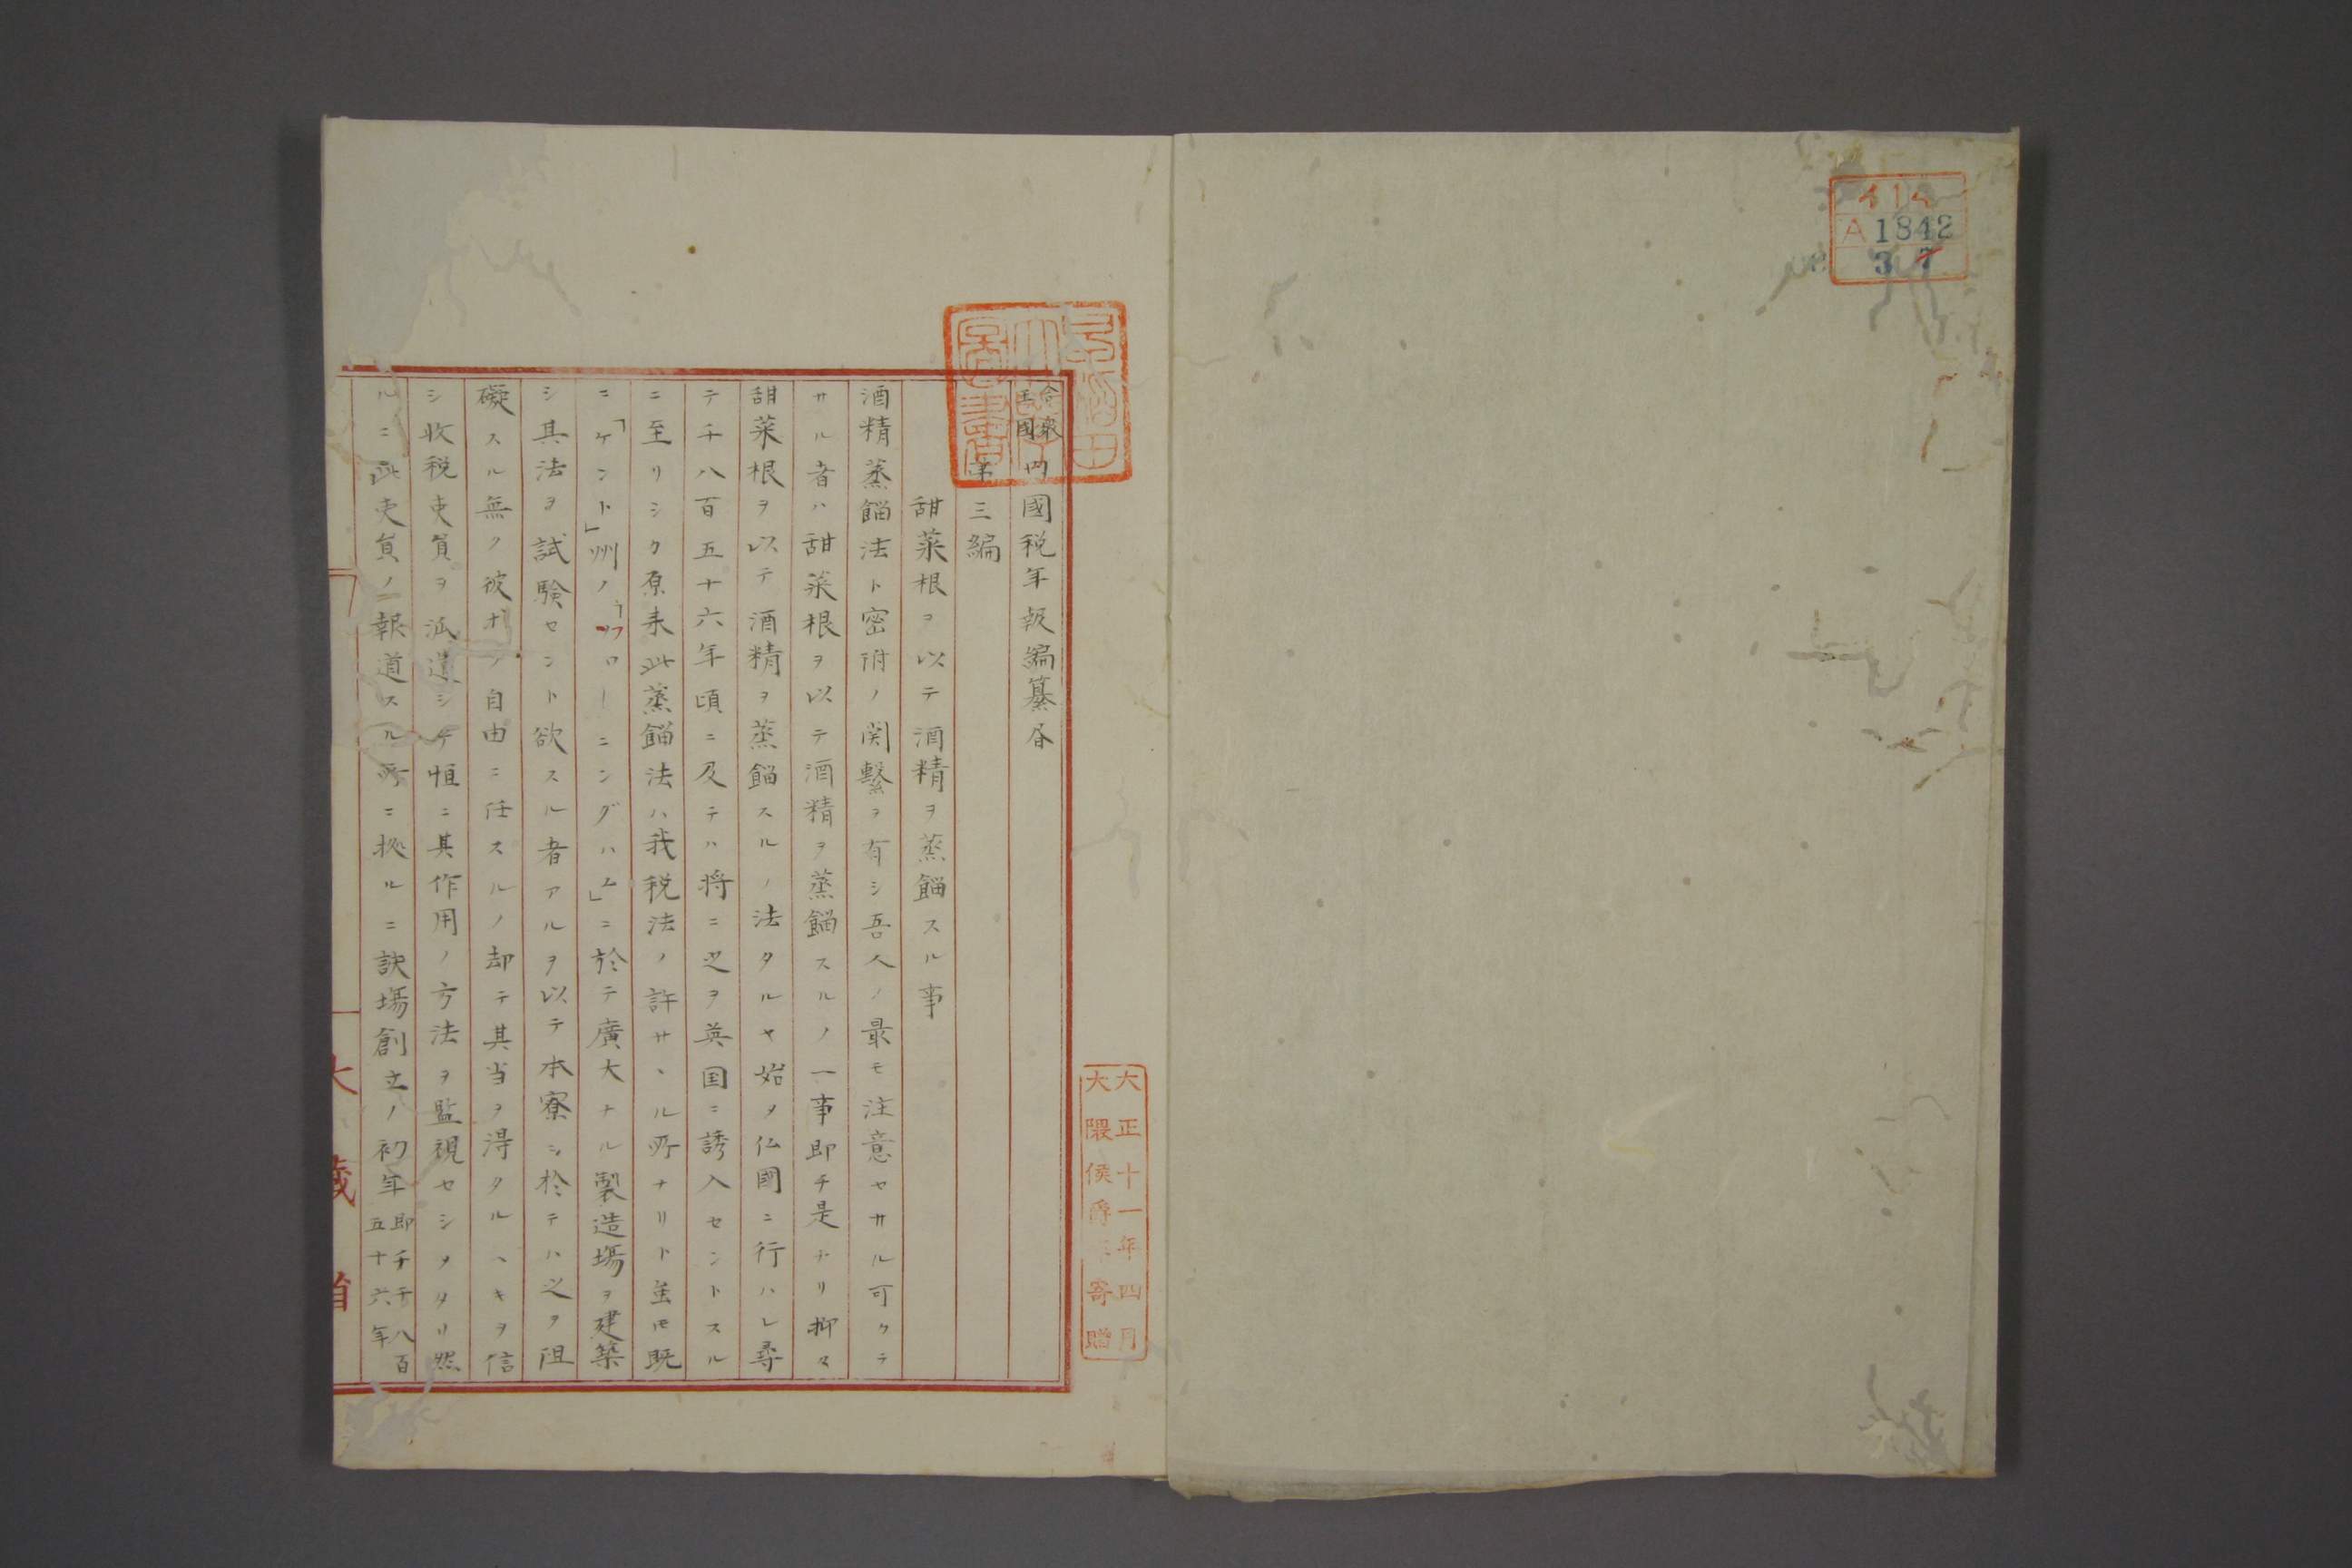 イ14
A 1842
3 7
大正十一年四月
大隈侯爵家寄贈
早稲田
大學
圖書
合衆王國内國税年報編纂書
第三編
甜菜根ヲ以テ酒精ヲ蒸餾スル事
酒精蒸餾法ト密附ノ関繫ヲ有シ吾人ノ最モ注意セサル可クテ
サル者ハ甜菜根ヲ以テ酒精ヲ蒸餾スルノ一事即チ是ナリ抑々
甜菜根ヲ以テ酒精ヲ蒸餾スルノ法タルヤ始メ仏國ニ行ハレ尋
テ千八百五十六年頃ニ及テハ将ニ之ヲ英国ニ誘入セントスル
ニ至リシク原来此蒸餾法ハ我税法ノ許サヽル所ナリト雖モ既
ニ「ケント」州ノ「ワローニングハム」ニ於テ廣大ナル製造場ヲ建築
シ其法ヲ試験セント欲スル者アルヲ以テ本寮ニ於テハ之ヲ阻
礙スル無ク彼オノ自由ニ任スルノ却テ其当ヲ得タルヘキヲ信
シ收税吏員ヲ派遣シテ恒ニ其作用ノ方法ヲ監視セシメタリ然
ルニ此吏員ノ報道スル所ニ拠ルニ該場創立ノ初年即チ千八百五十六年
大藏省